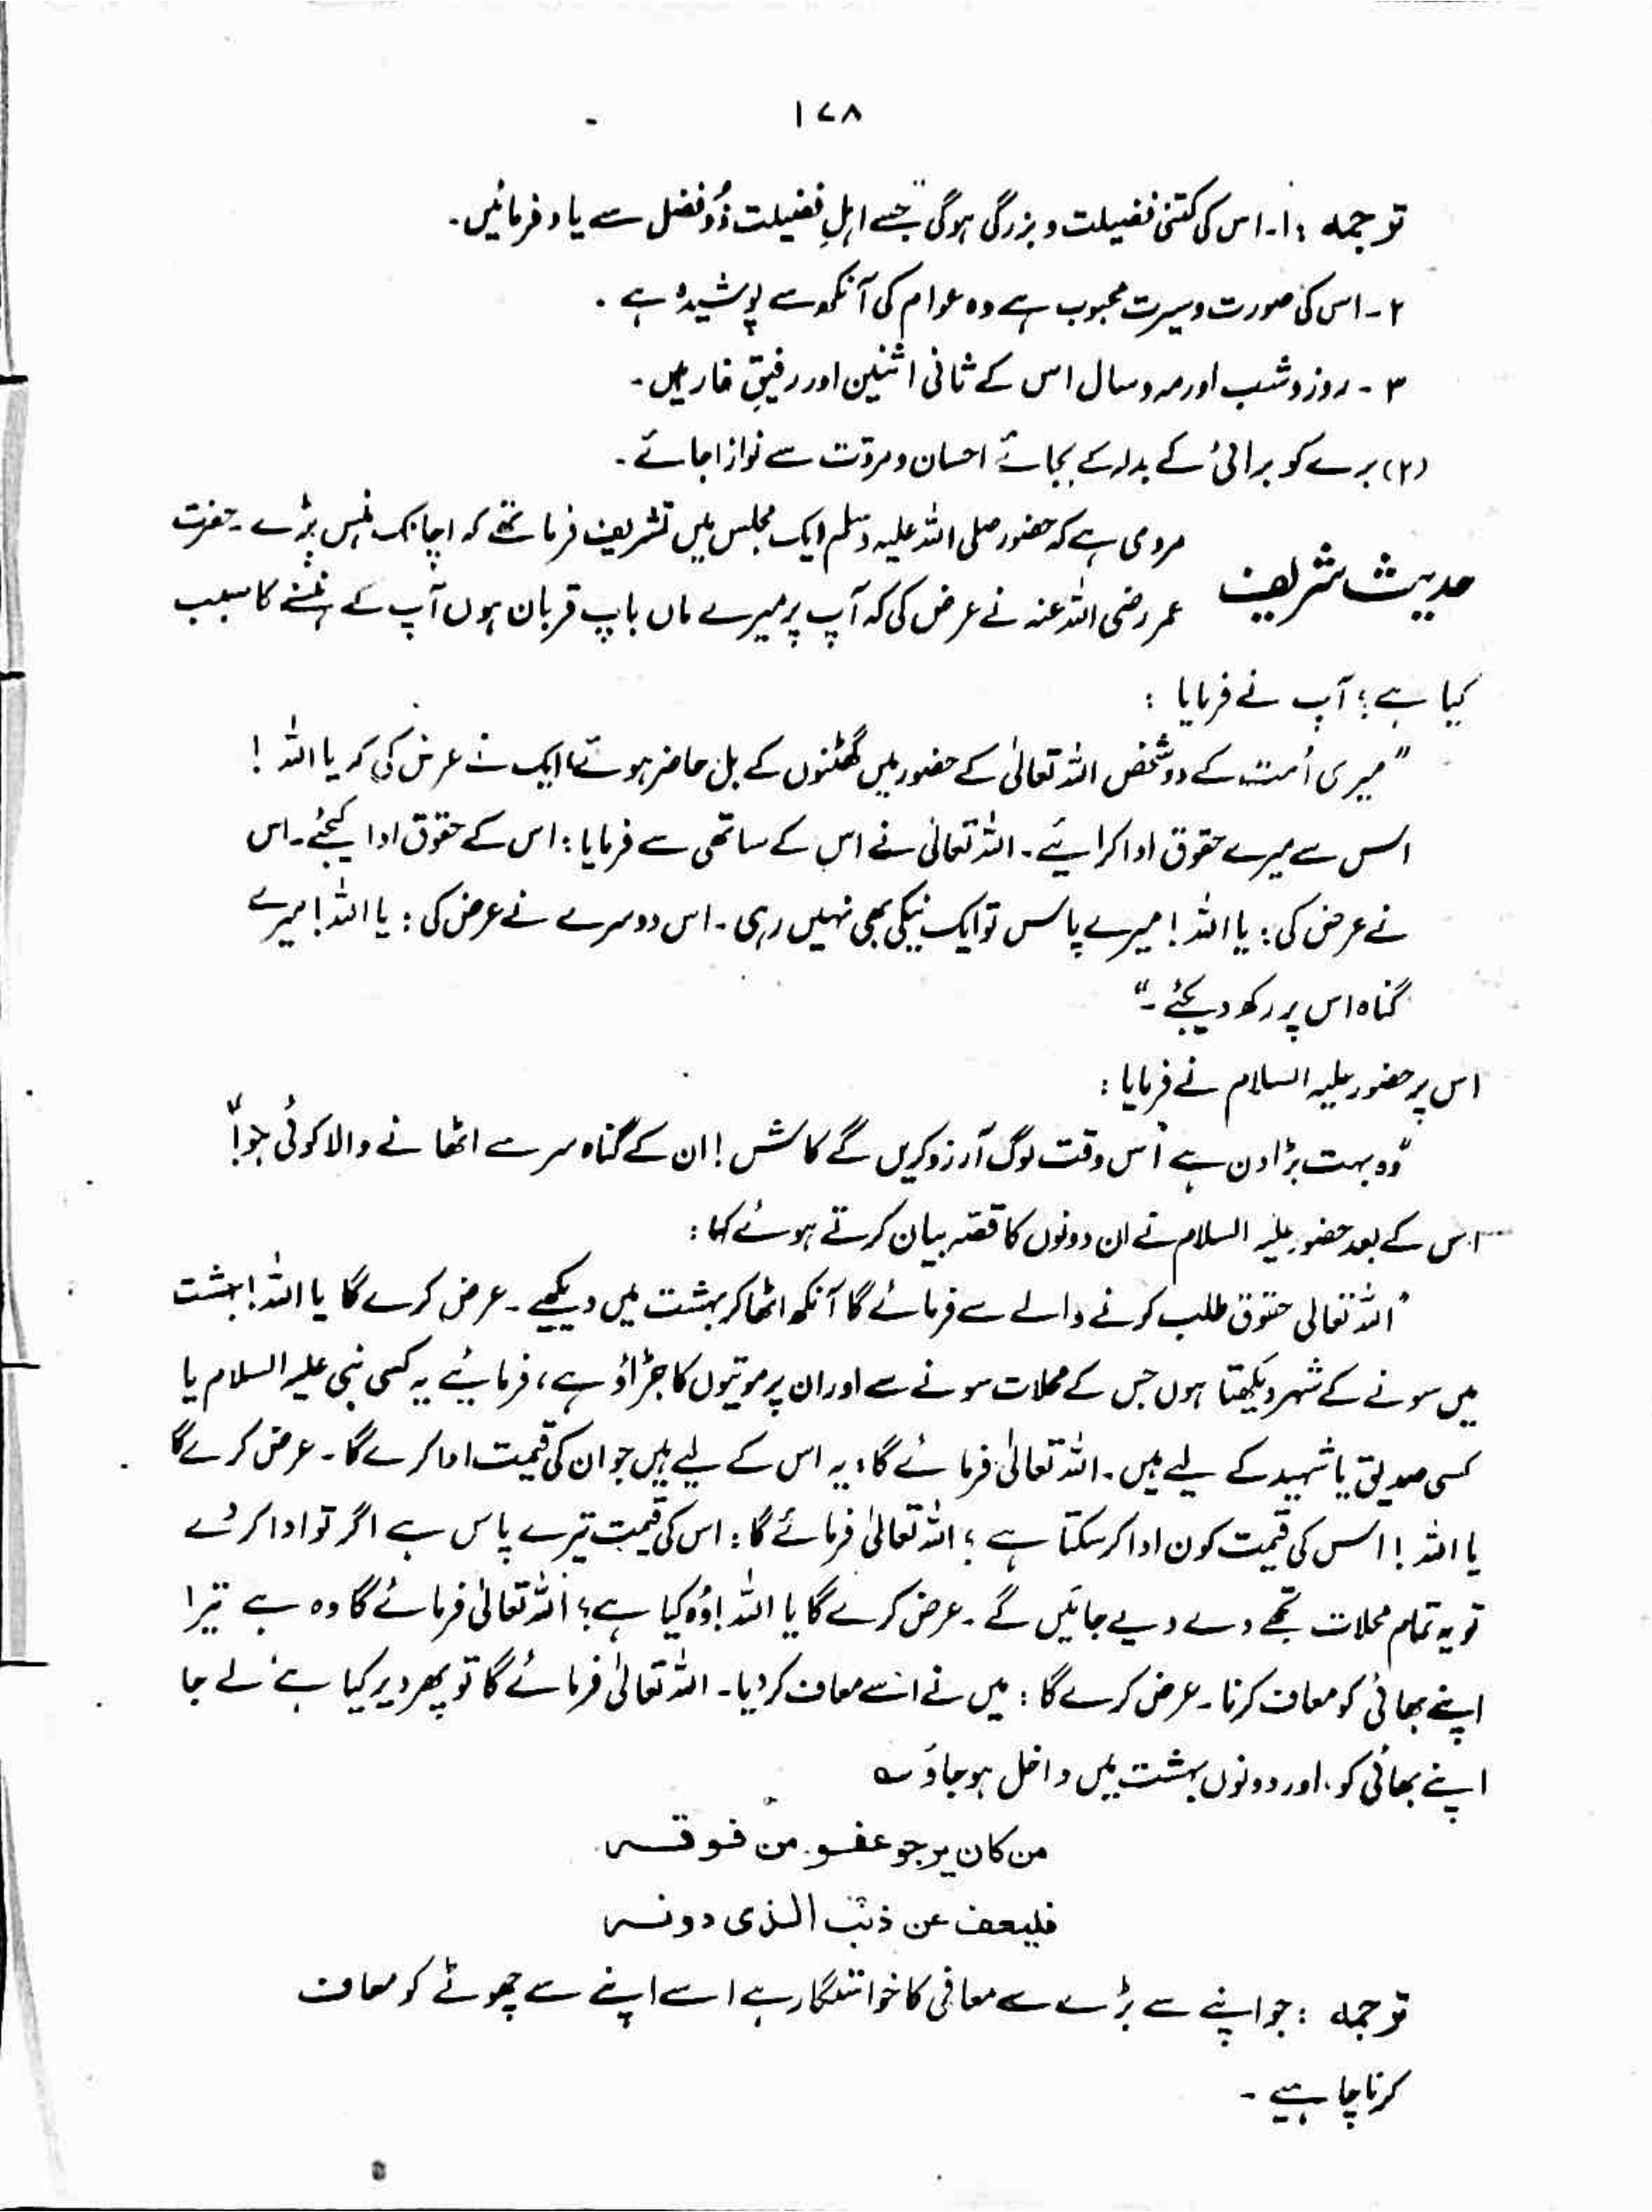 ۱۷۸
ترجمہ : ۱۔ اس کی کتنی فضیلت و بزرگی ہوگی جسے اہلِ فضیلت ذُو فضل سے یاد فرمائیں۔
۲۔ اس کی صورت و سیرت محبوب ہے وہ عوام کی آنکھ سے پوشیدہ ہے۔
۳۔ روز و شب اور مہ و سال اس کے ثانی اثنین اور رفیقِ غار ہیں۔
(۲) برے کو برائی کے بدلہ کے بجائے احسان و مروّت سے نوازا جائے۔
حدیث شریف
مروی ہے کہ حضور صلی اللہ علیہ وسلم ایک مجلس میں تشریف فرما تھے کہ اچانک ہنس پڑے۔ حضرت
عمر رضی اللہ عنہ نے عرض کی کہ آپ پر میرے ماں باپ قربان ہوں آپ کے ہنسنے کا سبب
کیا ہے؟ آپ نے فرمایا :
"میری اُمت کے دو شخص اللہ تعالیٰ کے حضور میں گھٹنوں کے بل حاضر ہوئے، ایک نے عرض کی کہ یا اللہ !
اس سے میرے حقوق ادا کرائیے۔ اللہ تعالیٰ نے اس کے ساتھی سے فرمایا : اس کے حقوق ادا کیجئے۔ اس
نے عرض کی : یا اللہ ! میرے پاس تو ایک نیکی بھی نہیں رہی۔ اس دوسرے نے عرض کی : یا اللہ ! میرے
گناہ اس پر رکھ دیجئے۔"
اس پر حضور علیہ السلام نے فرمایا :
"وہ بہت بڑا دن ہے اُس وقت لوگ آرزو کریں گے کاش ! ان کے گناہ سر سے اٹھانے والا کوئی ہو!"
اس کے بعد حضور علیہ السلام نے ان دونوں کا قصّہ بیان کرتے ہوئے کہا :
"اللہ تعالیٰ حقوق طلب کرنے والے سے فرمائے گا آنکھ اٹھا کر بہشت میں دیکھیے۔ عرض کرے گا یا اللہ ! بہشت
میں سونے کے شہر دیکھتا ہوں جس کے محلات سونے سے اور ان پر موتیوں کا جڑاؤ ہے، فرمائیے یہ کسی نبی علیہ السلام یا
کسی صدیق یا شہید کے لیے ہیں۔ اللہ تعالیٰ فرمائے گا : یہ اس کے لیے ہیں جو ان کی قیمت ادا کرے گا۔ عرض کرے گا
یا اللہ ! اس کی قیمت کون ادا کر سکتا ہے ؟ اللہ تعالیٰ فرمائے گا : اس کی قیمت تیرے پاس ہے اگر تو ادا کر دے
تو یہ تمام محلات تجھے دے دیے جائیں گے۔ عرض کرے گا یا اللہ ! وُہ کیا ہے؟ اللہ تعالیٰ فرمائے گا وہ ہے تیرا
اپنے بھائی کو معاف کرنا۔ عرض کرے گا : میں نے اسے معاف کر دیا۔ اللہ تعالیٰ فرمائے گا تو پھر دیر کیا ہے لے جا
اپنے بھائی کو، اور دونوں بہشت میں داخل ہو جاؤ ؎
من کان یرجو عفو من فوقہ
فلیعف عن ذنب الذی دونہ
ترجمہ : جو اپنے سے بڑے سے معافی کا خواستگار ہے اسے اپنے سے چھوٹے کو معاف
کرنا چاہیے۔